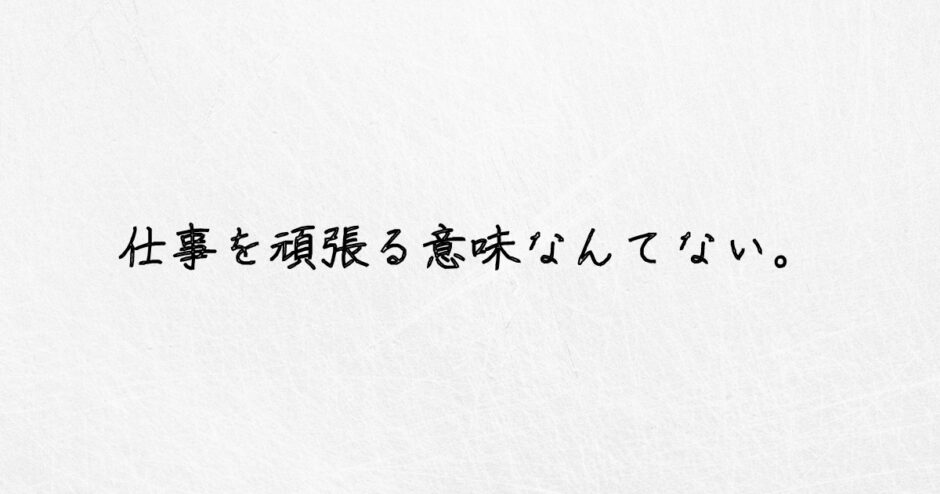 仕事を頑張る意味なんてない。